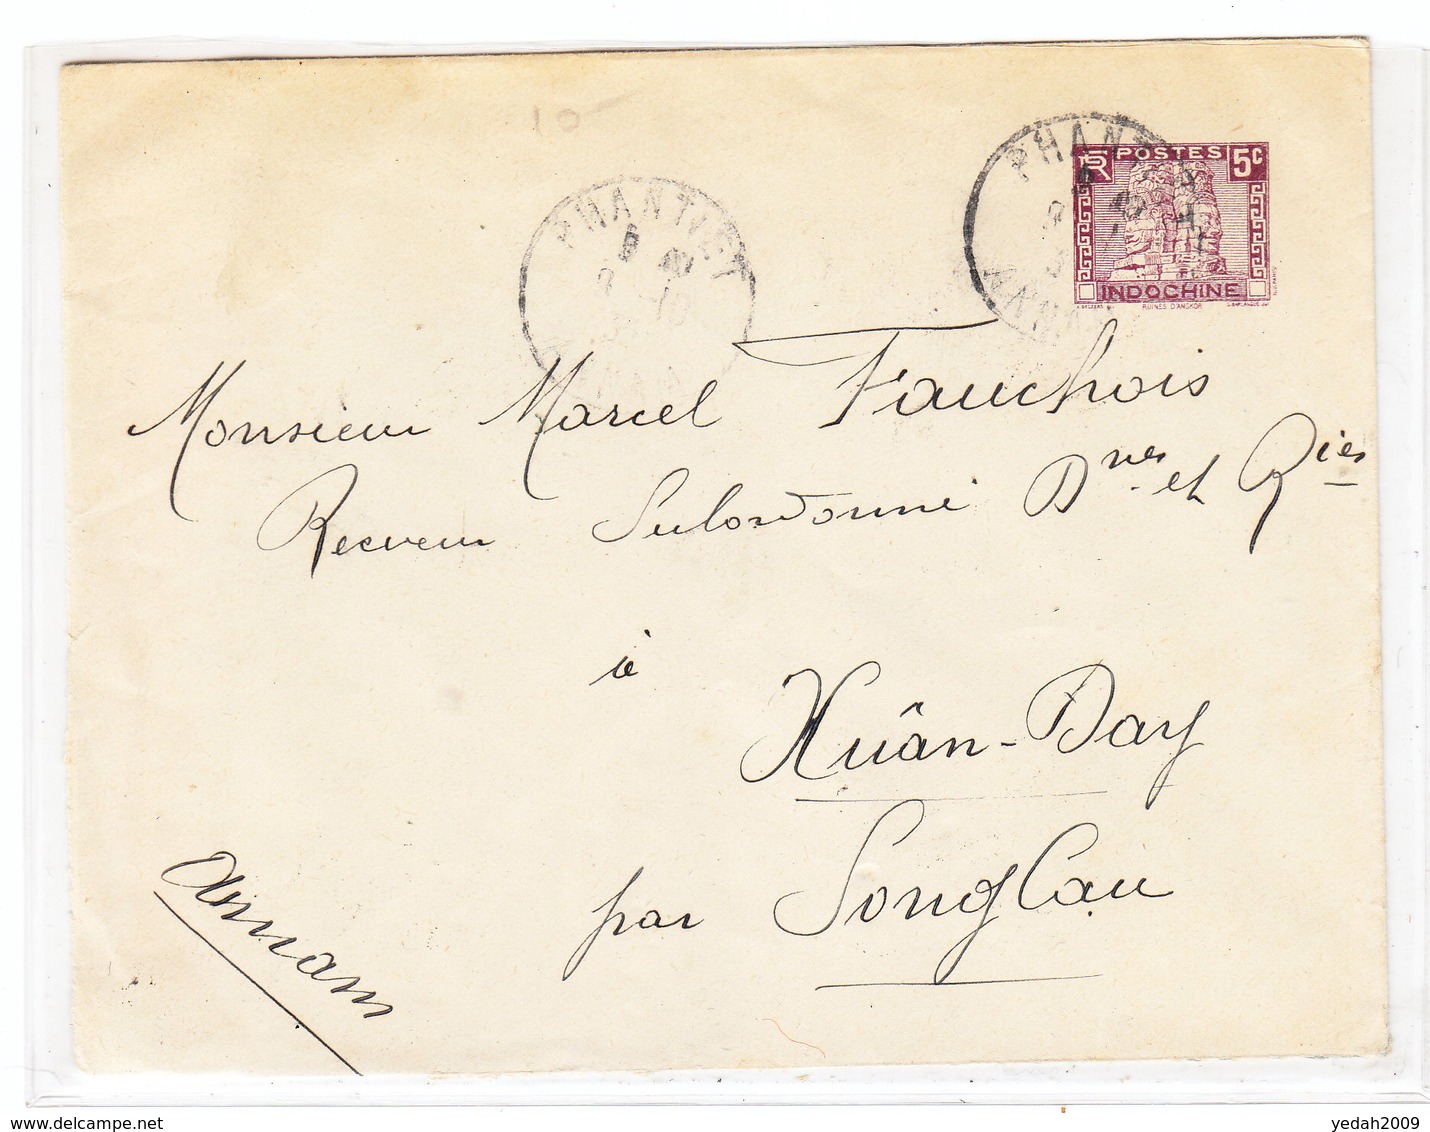 10
PHANTHIET
ANNAM
POSTES 5c
RF
INDOCHINE
RUINES D'ANGKOR
PHANTHIET
8 -10
Monsieur Marcel Fauchois
Receveur Subordonné Dnes et Ries
à
Xuân-Day
par Song Cau
Annam
www.delcampe.net
yedah2009